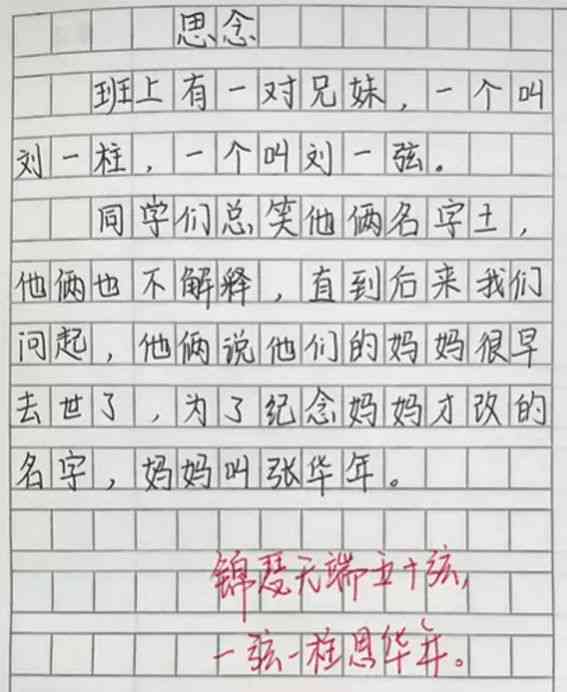 思念
班上有一对兄妹，一个叫
刘一柱，一个叫刘一弦。
同学们总笑他俩名字土，
他俩也不解释，直到后来我们
问起，他俩说他们的妈妈很早
去世了，为了纪念妈妈才改的
名字，妈妈叫张华年。
锦瑟无端五十弦，
一弦一柱思华年。